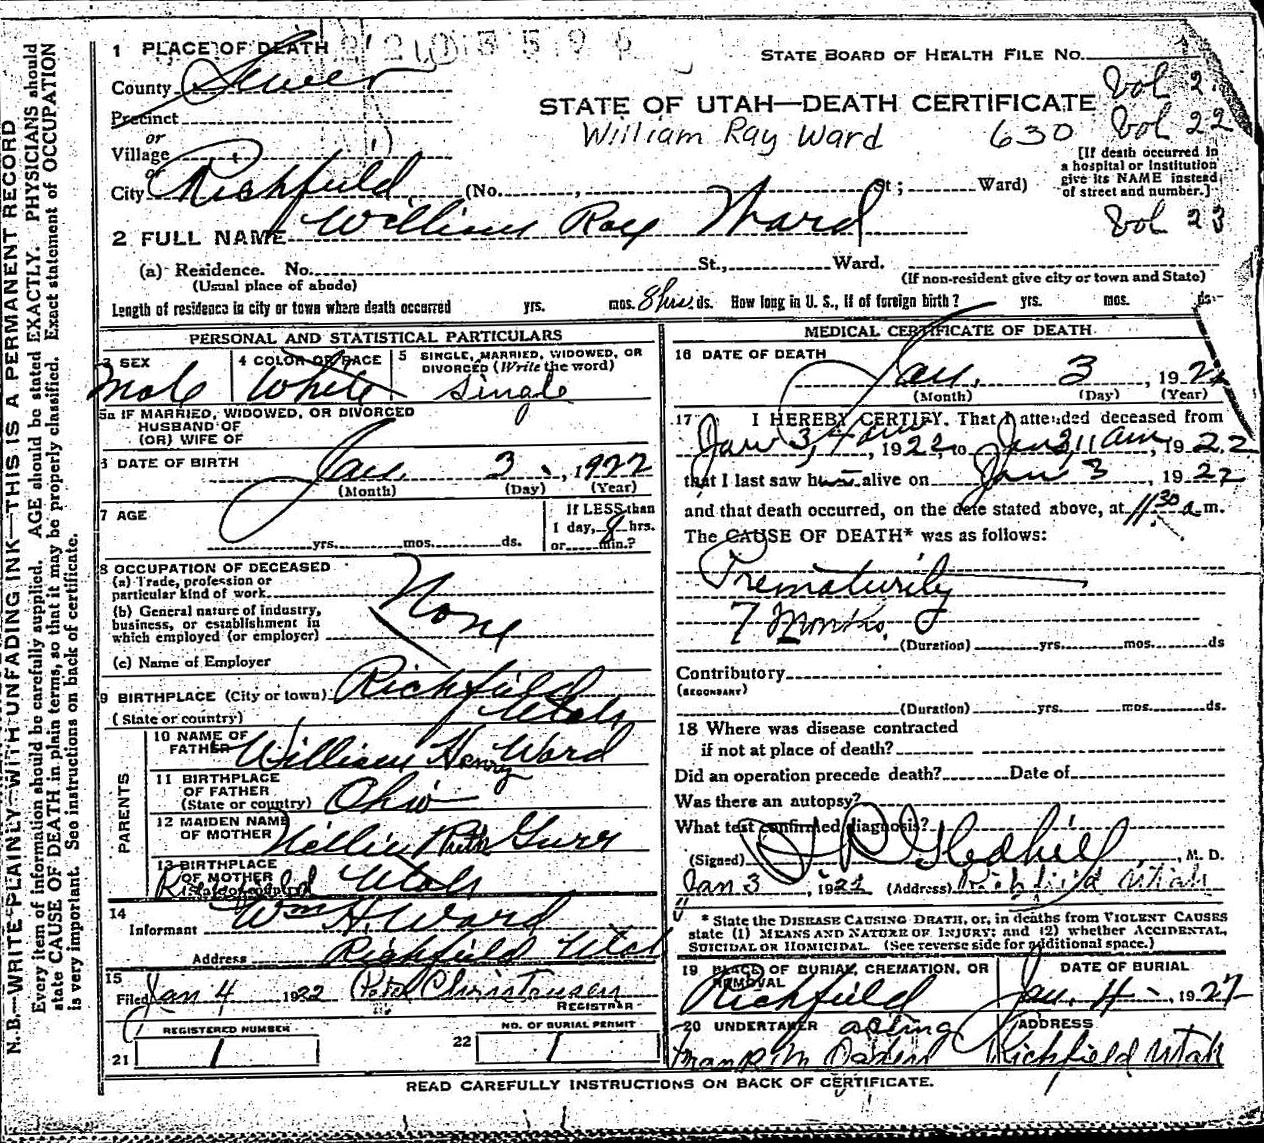 N.B.—WRITE PLAINLY WITH UNFADING INK—THIS IS A PERMANENT RECORD
Every item of information should be carefully supplied. AGE should be stated EXACTLY. PHYSICIANS should
state CAUSE OF DEATH in plain terms, so that it may be properly classified. Exact statement of OCCUPATION
is very important. See instructions on back of certificate.
1 PLACE OF DEATH
STATE BOARD OF HEALTH FILE No.
County Sevier
Vol 2
STATE OF UTAH—DEATH CERTIFICATE
Precinct
William Ray Ward 630 Vol 22
or
Village
or
[If death occurred in
a hospital or institution
give its NAME instead
of street and number.]
City Richfield (No. , St; Ward)
Vol 23
2 FULL NAME William Ray Ward
(a) Residence. No. St., Ward.
(Usual place of abode) (If non-resident give city or town and State)
Length of residence in city or town where death occurred yrs. mos. 8 hrs. ds. How long in U. S., if of foreign birth? yrs. mos. ds.
PERSONAL AND STATISTICAL PARTICULARS
3 SEX Male
4 COLOR OR RACE White
5 SINGLE, MARRIED, WIDOWED, OR
DIVORCED (Write the word)
Single
5a IF MARRIED, WIDOWED, OR DIVORCED
HUSBAND OF
(OR) WIFE OF
6 DATE OF BIRTH Jan. 3, 1922
(Month) (Day) (Year)
7 AGE
yrs. mos. ds.
If LESS than
1 day, 8 hrs.
or min.?
8 OCCUPATION OF DECEASED
(a) Trade, profession or
particular kind of work
None
(b) General nature of industry,
business, or establishment in
which employed (or employer)
(c) Name of Employer
9 BIRTHPLACE (City or town) Richfield
(State or country) Utah
PARENTS
10 NAME OF
FATHER William Henry Ward
11 BIRTHPLACE
OF FATHER
(State or country) Ohio
12 MAIDEN NAME
OF MOTHER Nellie Ruth Gurr
13 BIRTHPLACE
OF MOTHER
(State or country) Richfield Utah
14
Informant Wm H. Ward
Address Richfield Utah
15
Filed Jan 4 1922 Christensen
REGISTRAR
REGISTERED NUMBER
21 1
NO. OF BURIAL PERMIT
22 1
MEDICAL CERTIFICATE OF DEATH
16 DATE OF DEATH
Jan. 3, 192
(Month) (Day) (Year)
17 I HEREBY CERTIFY, That I attended deceased from
Jan 3, 4 am, 1922, to Jan 3, 11 am, 1922
that I last saw him alive on Jan 3, 1922
and that death occurred, on the date stated above, at 11:30 a.m.
The CAUSE OF DEATH* was as follows:
Prematurity
7 Months.
(Duration) yrs. mos. ds
Contributory
(SECONDARY)
(Duration) yrs. mos. ds.
18 Where was disease contracted
if not at place of death?
Did an operation precede death? Date of
Was there an autopsy?
What test confirmed diagnosis?
(Signed) Gledhill, M. D.
Jan 3, 1922 (Address) Richfield Utah
* State the DISEASE CAUSING DEATH, or, in deaths from VIOLENT CAUSES
state (1) MEANS AND NATURE OF INJURY; and (2) whether ACCIDENTAL,
SUICIDAL OR HOMICIDAL. (See reverse side for additional space.)
19 PLACE OF BURIAL, CREMATION, OR
REMOVAL
Richfield
DATE OF BURIAL
Jan. 4, 1922
20 UNDERTAKER acting
Frank M Ogden
ADDRESS
Richfield Utah
READ CAREFULLY INSTRUCTIONS ON BACK OF CERTIFICATE.